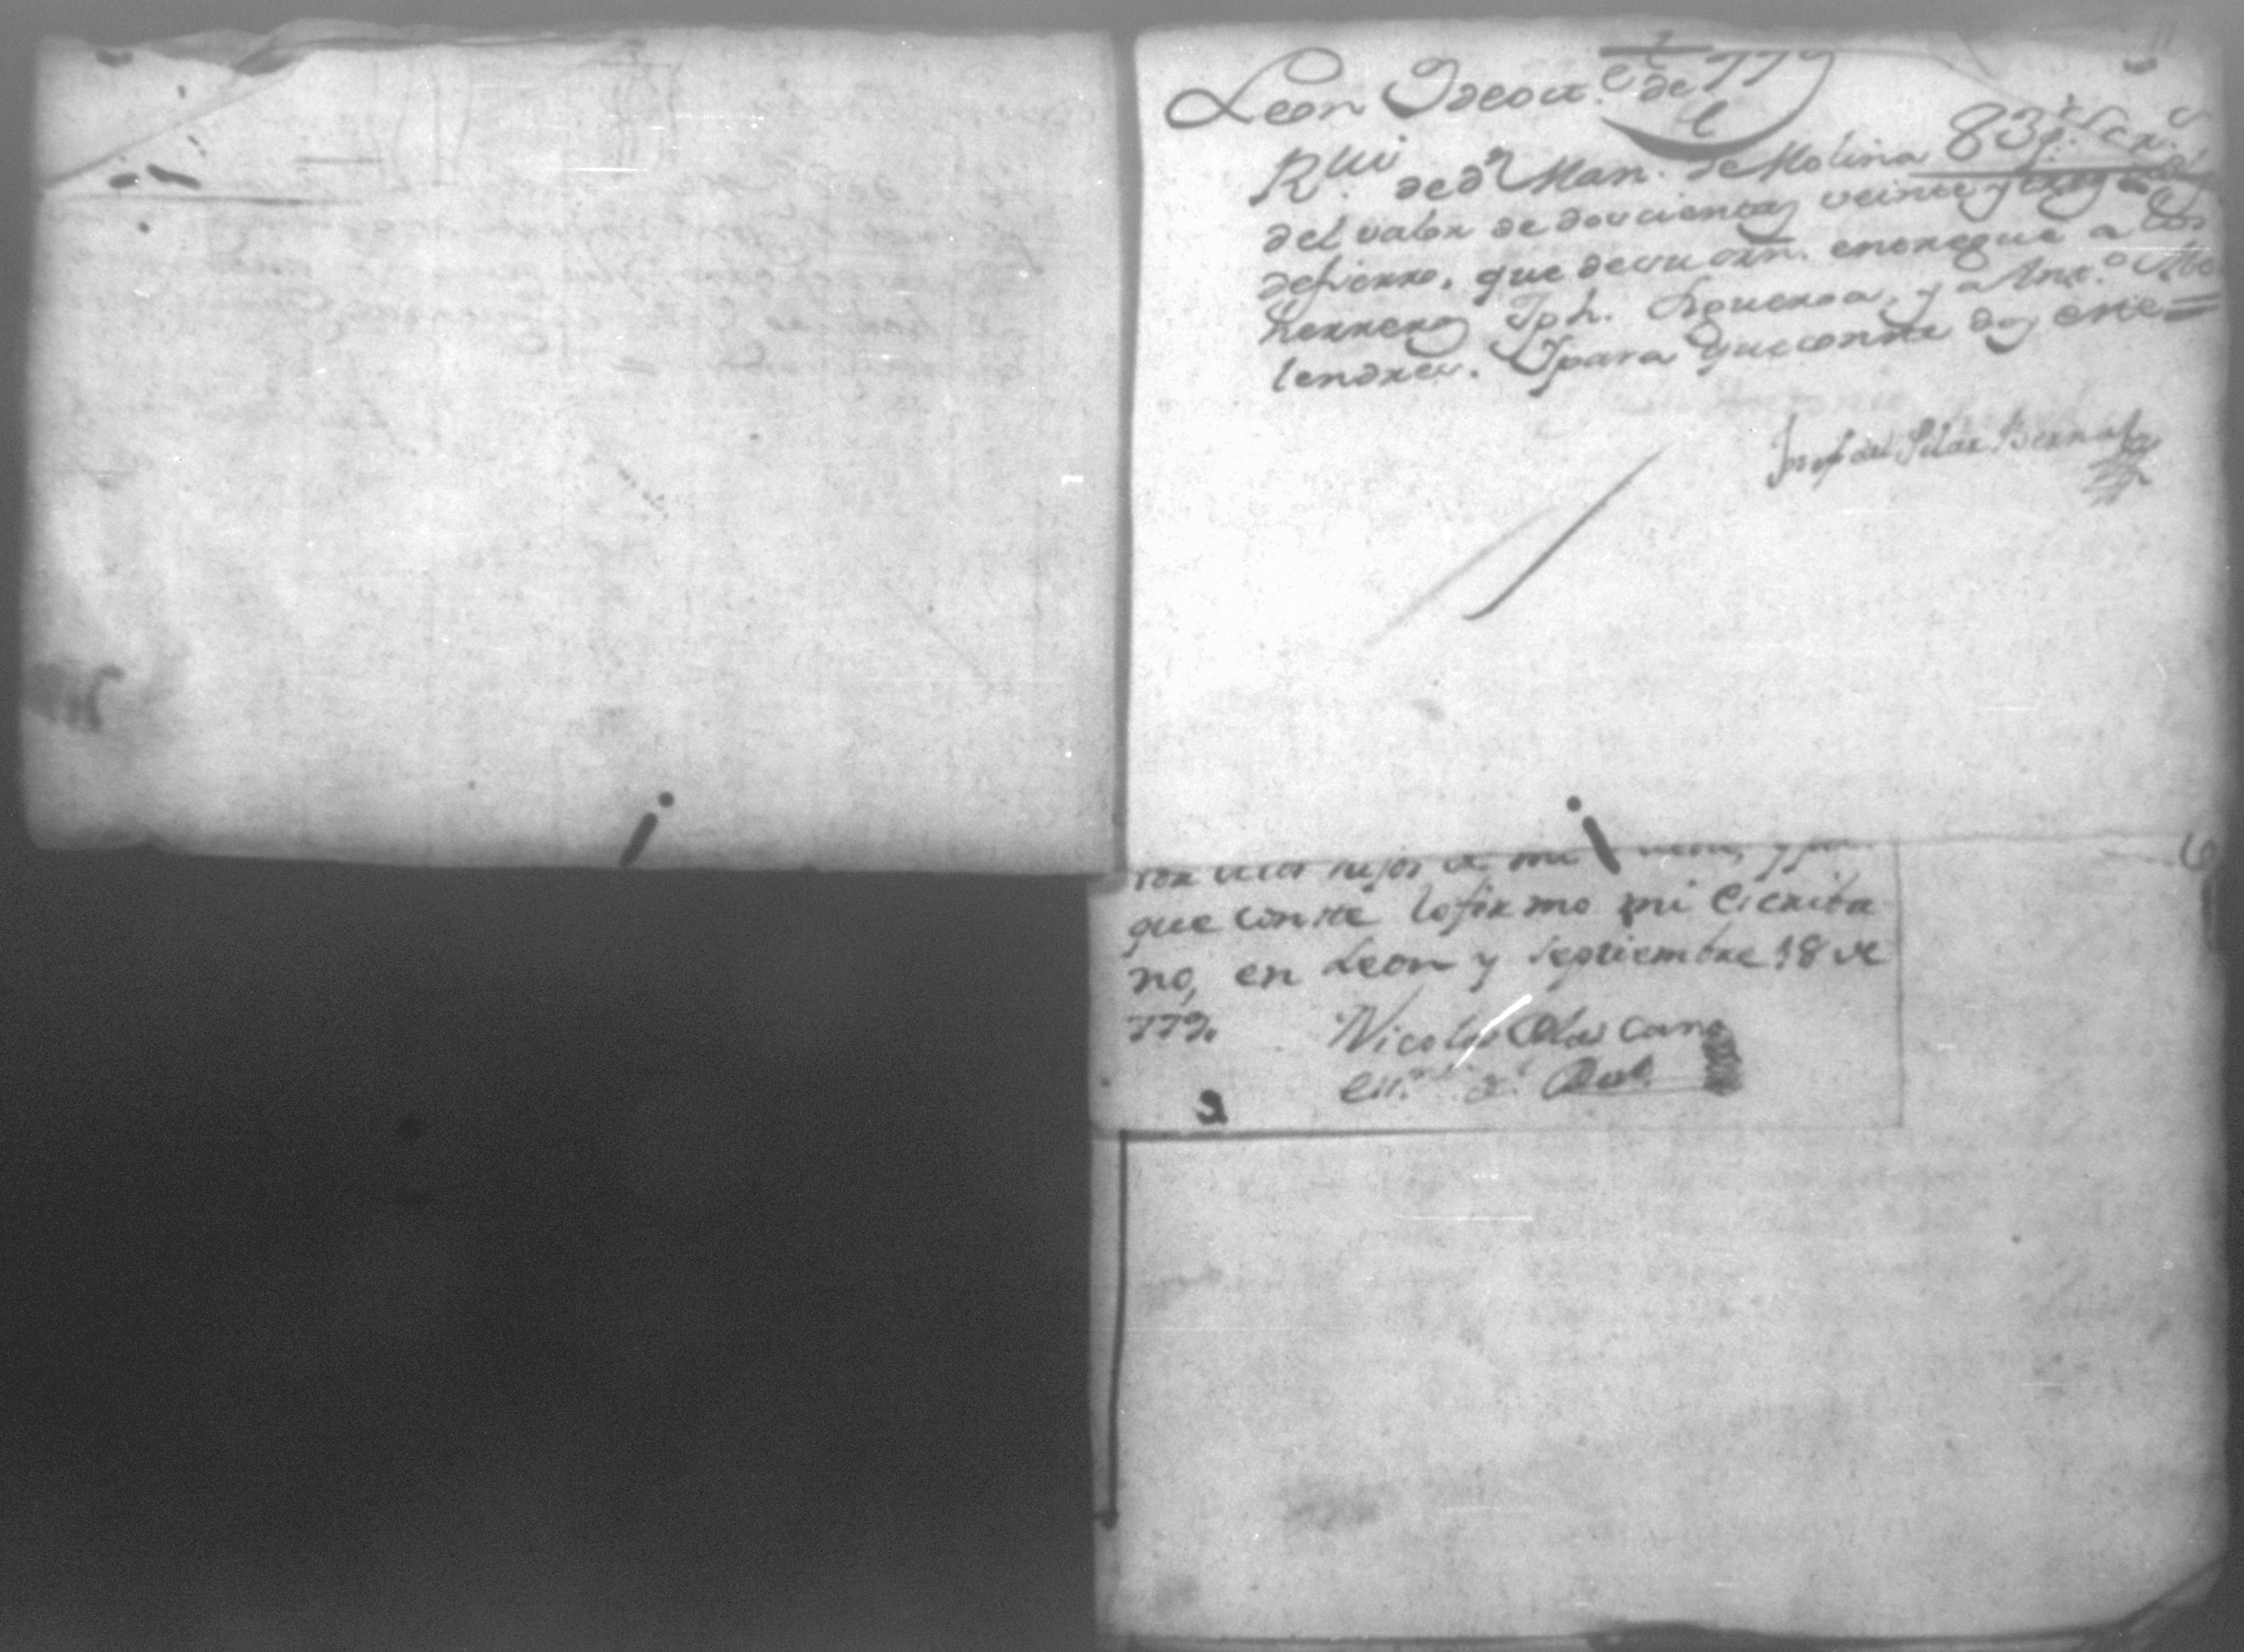 Leon 9 de oct.e de 779
Rui de dn Man. de Molina 83 p.s
del valor de doucientas veinte y tres
de fierro, que de su orn. entregue a los
herreros Jph. Figueroa, y a Ant.o Me
lendres. Y para que conste doy este =
Josef del Pilar Bernal
que conste lo firmo mi Escriba
no, en Leon y Septiembre 18 de
779. Nicolas Olas cano